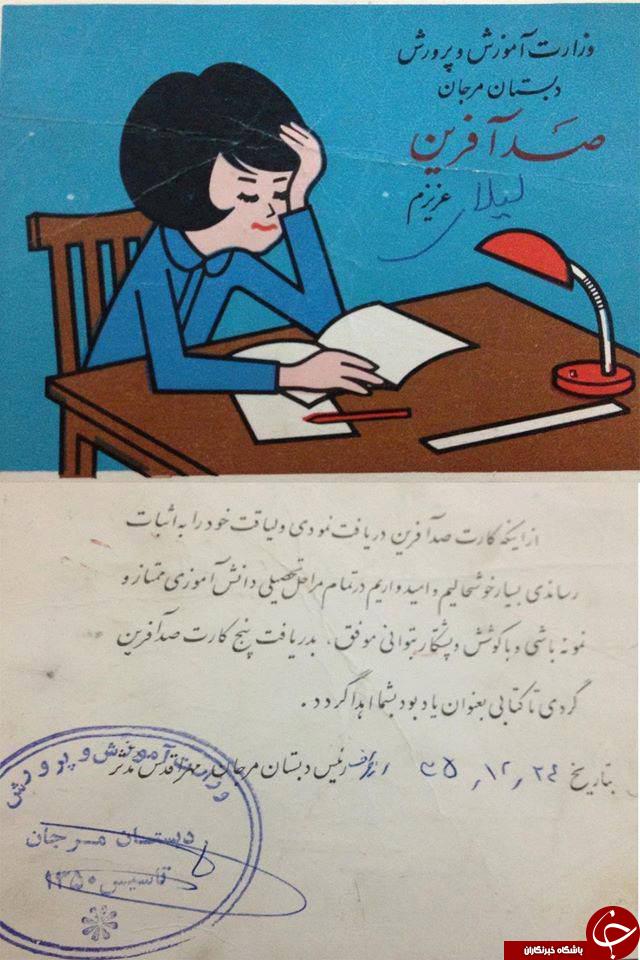 وزارت آموزش و پرورش
دبستان مرجان
صد آفرین
لیلای عزیزم
از اینکه کارت صد آفرین دریافت نمودی و لیاقت خود را به اثبات
رساندی بسیار خوشحالیم و امیدواریم در تمام مراحل تحصیلی دانش آموزی ممتاز و
نمونه باشی و با کوشش و پشتکار بتوانی موفق، بدریافت پنج کارت صد آفرین
گردی تا کتابی بعنوان یادبود بشما اهدا گردد.
بتاریخ ۲۴ / ۱۲ / ۳۵ رئیس دبستان مرجان
وزارت آموزش و پرورش
دبستان مرجان
تاسیس ۱۳۵۰
باشگاه خبرنگاران